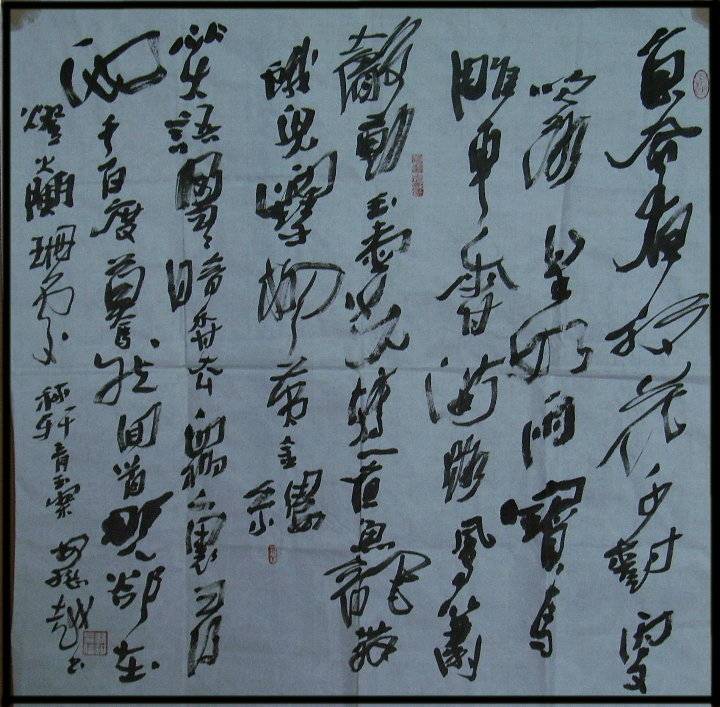 東風夜放花千樹更
吹落星如雨寶馬
雕車香滿路鳳簫
聲動玉壺光轉一夜魚龍舞
蛾兒雪柳黃金縷
笑語盈盈暗香去眾裏尋
他千百度驀然回首那人卻在
燈火闌珊處 稼軒青玉案 越書